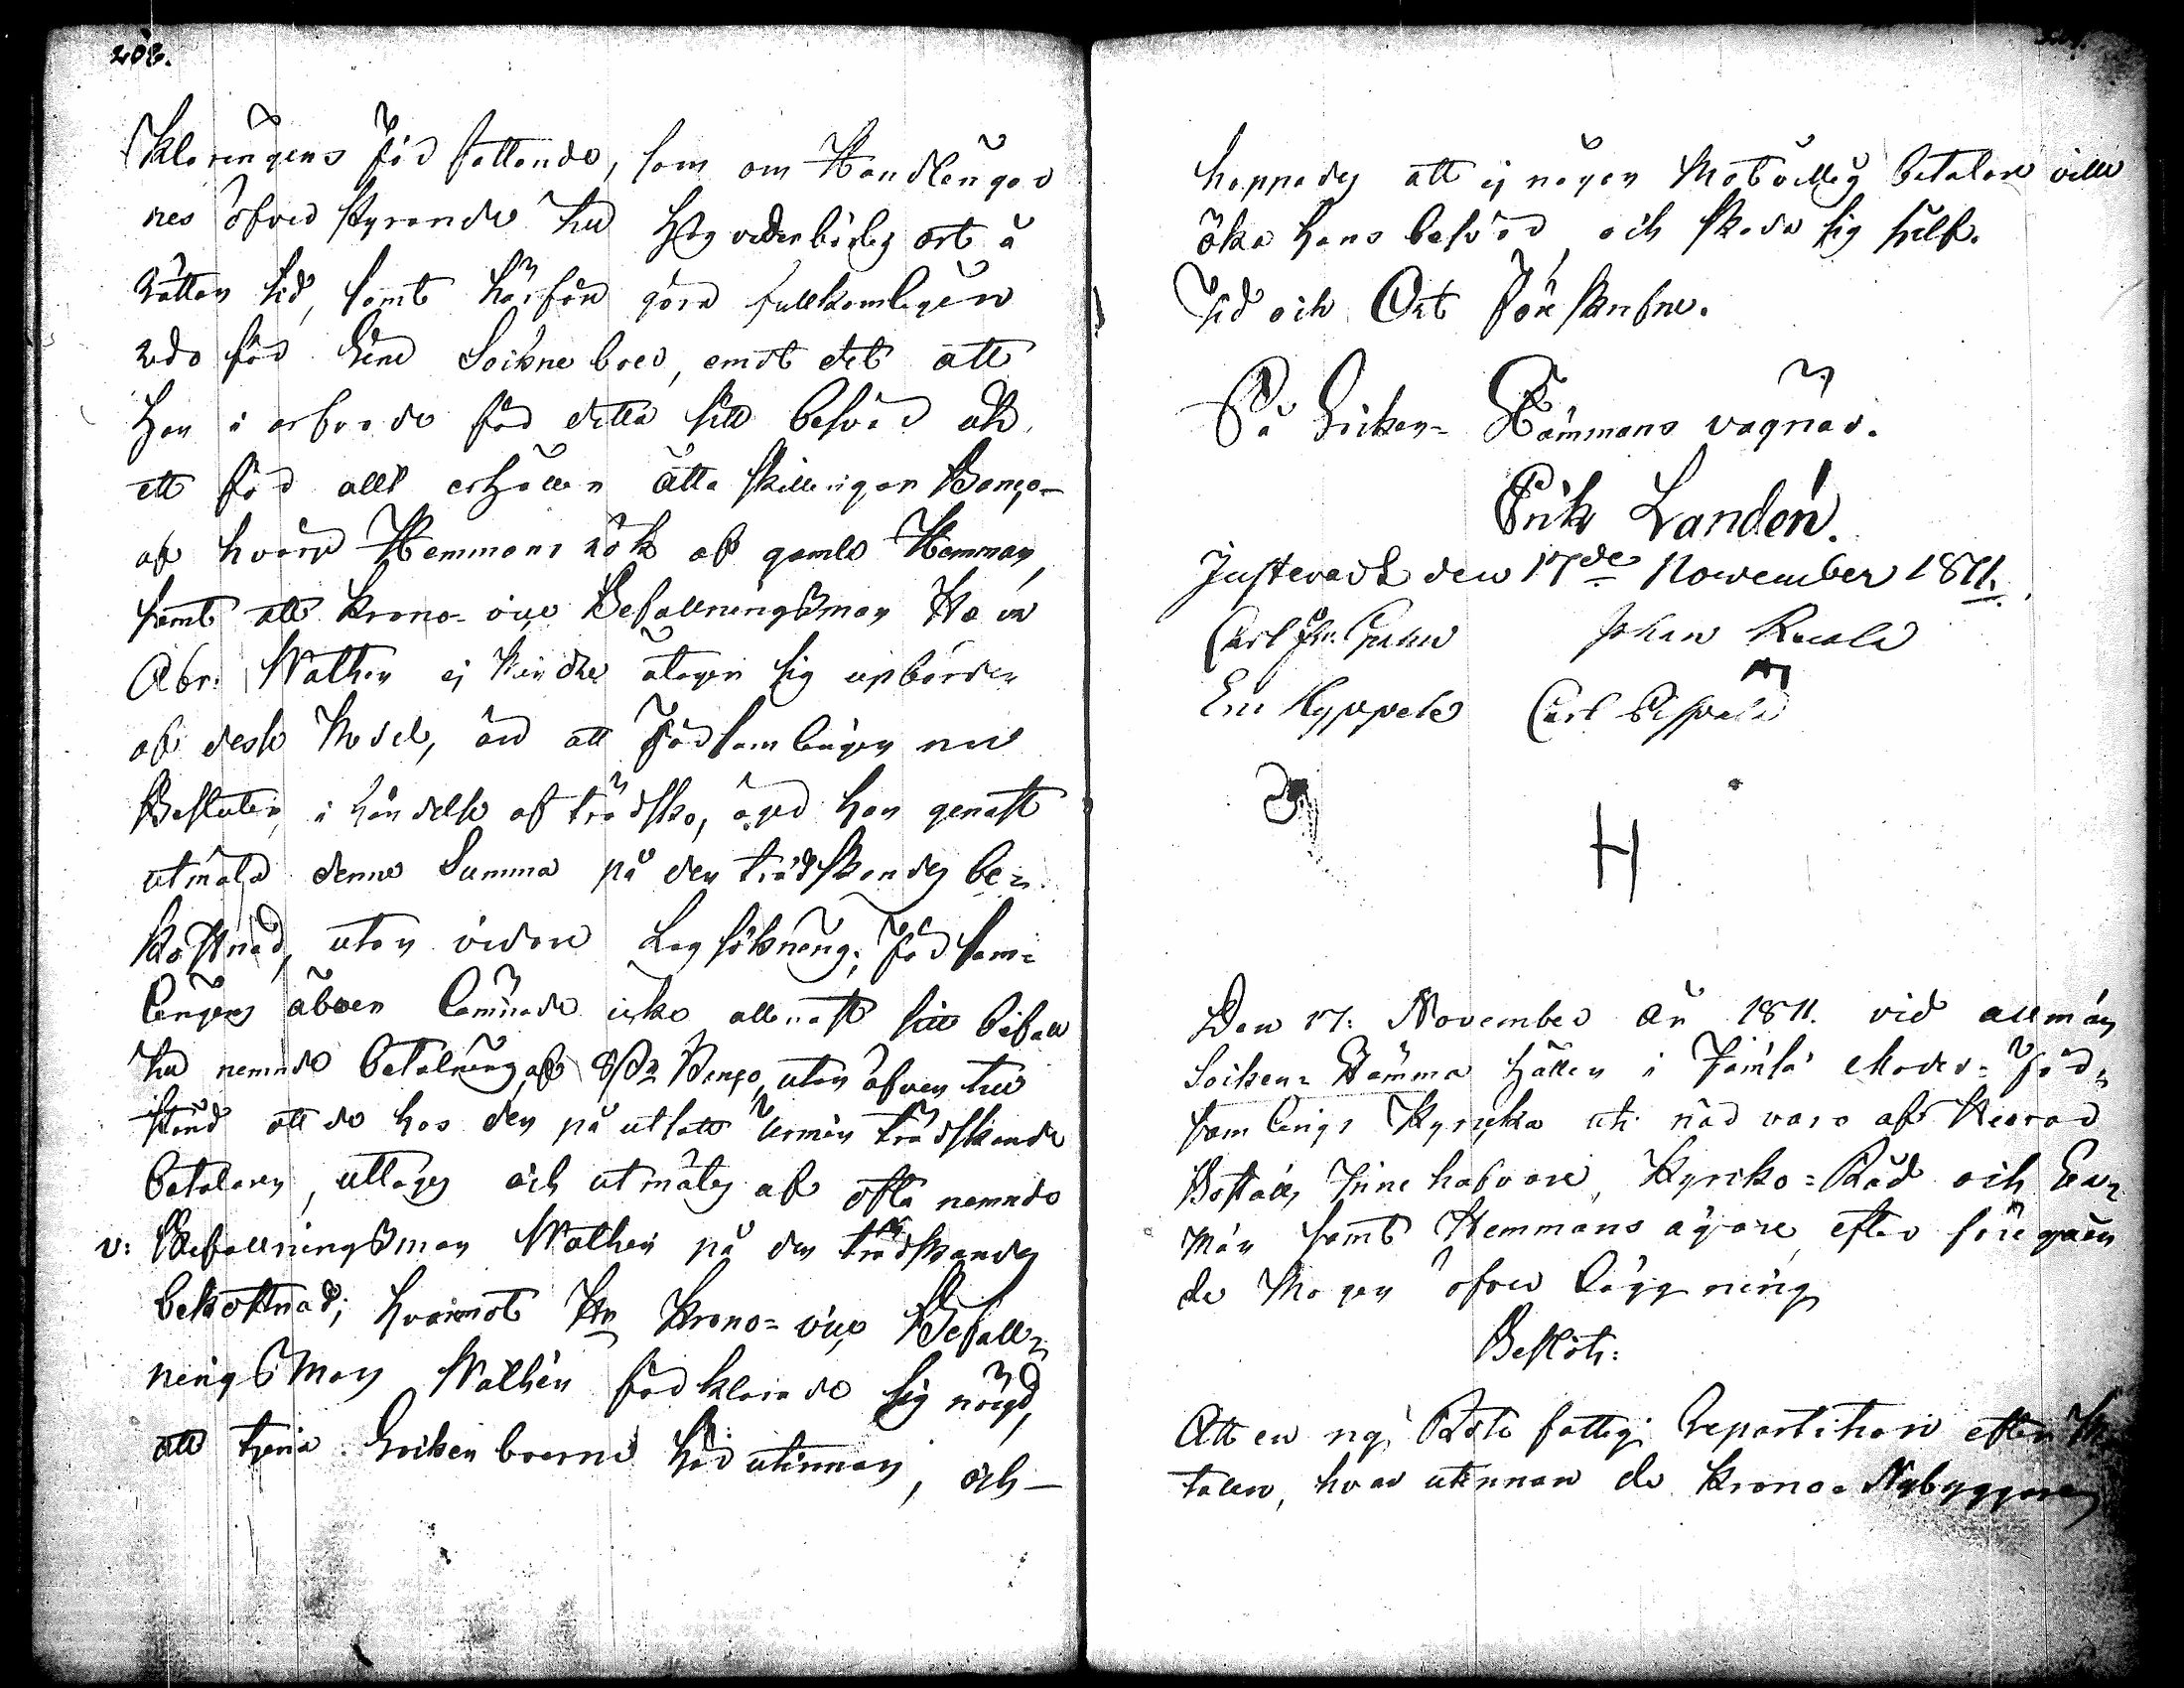 208.
Klaringens för fattande, som om Handlingar
nes öfver styrande till Hög vederbörlig ort å
rätten tid, samt härför göra fullkomligen
redo för Sine Sokne boer, emot det att
Han i arfvode för detta sitt besvär
ett för allt erhåller åtta skillingar Banço
af hvarje Hemmans rök af gamle Hemman,
samt att Krono- vice Befallningsman
Abr. Wathen ej mindre åtager sig upbörden
af desse medel, än att Församlingen
Besluter, i händelse af trädsko, äger han genast
utmäta denne Summa på den trädskandes be-
kostnad, utan vidare Lagsökning; För sam-
lingens äfven lemnade icke allenast sitt bifall
till nemnde betalning af 8 s. Banço, utan äfven till
stånd att de hos den på utsatt termin trädskande
betalaren, uttages och utmätes af ofta nemnde
v: Befallningsman Wathen på den trädskandes
bekostnad; hvaremot Hr Krono- vice Befall-
ningsman Wathen förklarade sig nögd,
att tjena Sockenboerne här utinnan, och
hoppades att ej någon motvillig betalare ville
öka hans besvär och skada sig sielf.
Tid och Ort förskrifne.
På Socken- Stämmans vägnar.
Erik Landén.
Justeradt den 17de November 1811.
Carl Johan
Eric Kyppelä Carl
H
Den 17: November år 1811. vid allmän
Socken- Stämma hållen i Jämsä Moder- För-
samlings Kyrcka uti när varo af Herrar
Boställs Innehafvare, Kyrcko- Råd och
män samt Hemmans ägare, efter föregåen
de mogen öfver läggning
Beslöts:
Att en ny Rote fattig Repartition efter
talen, hvar utinnan de Krono- Nybyggare